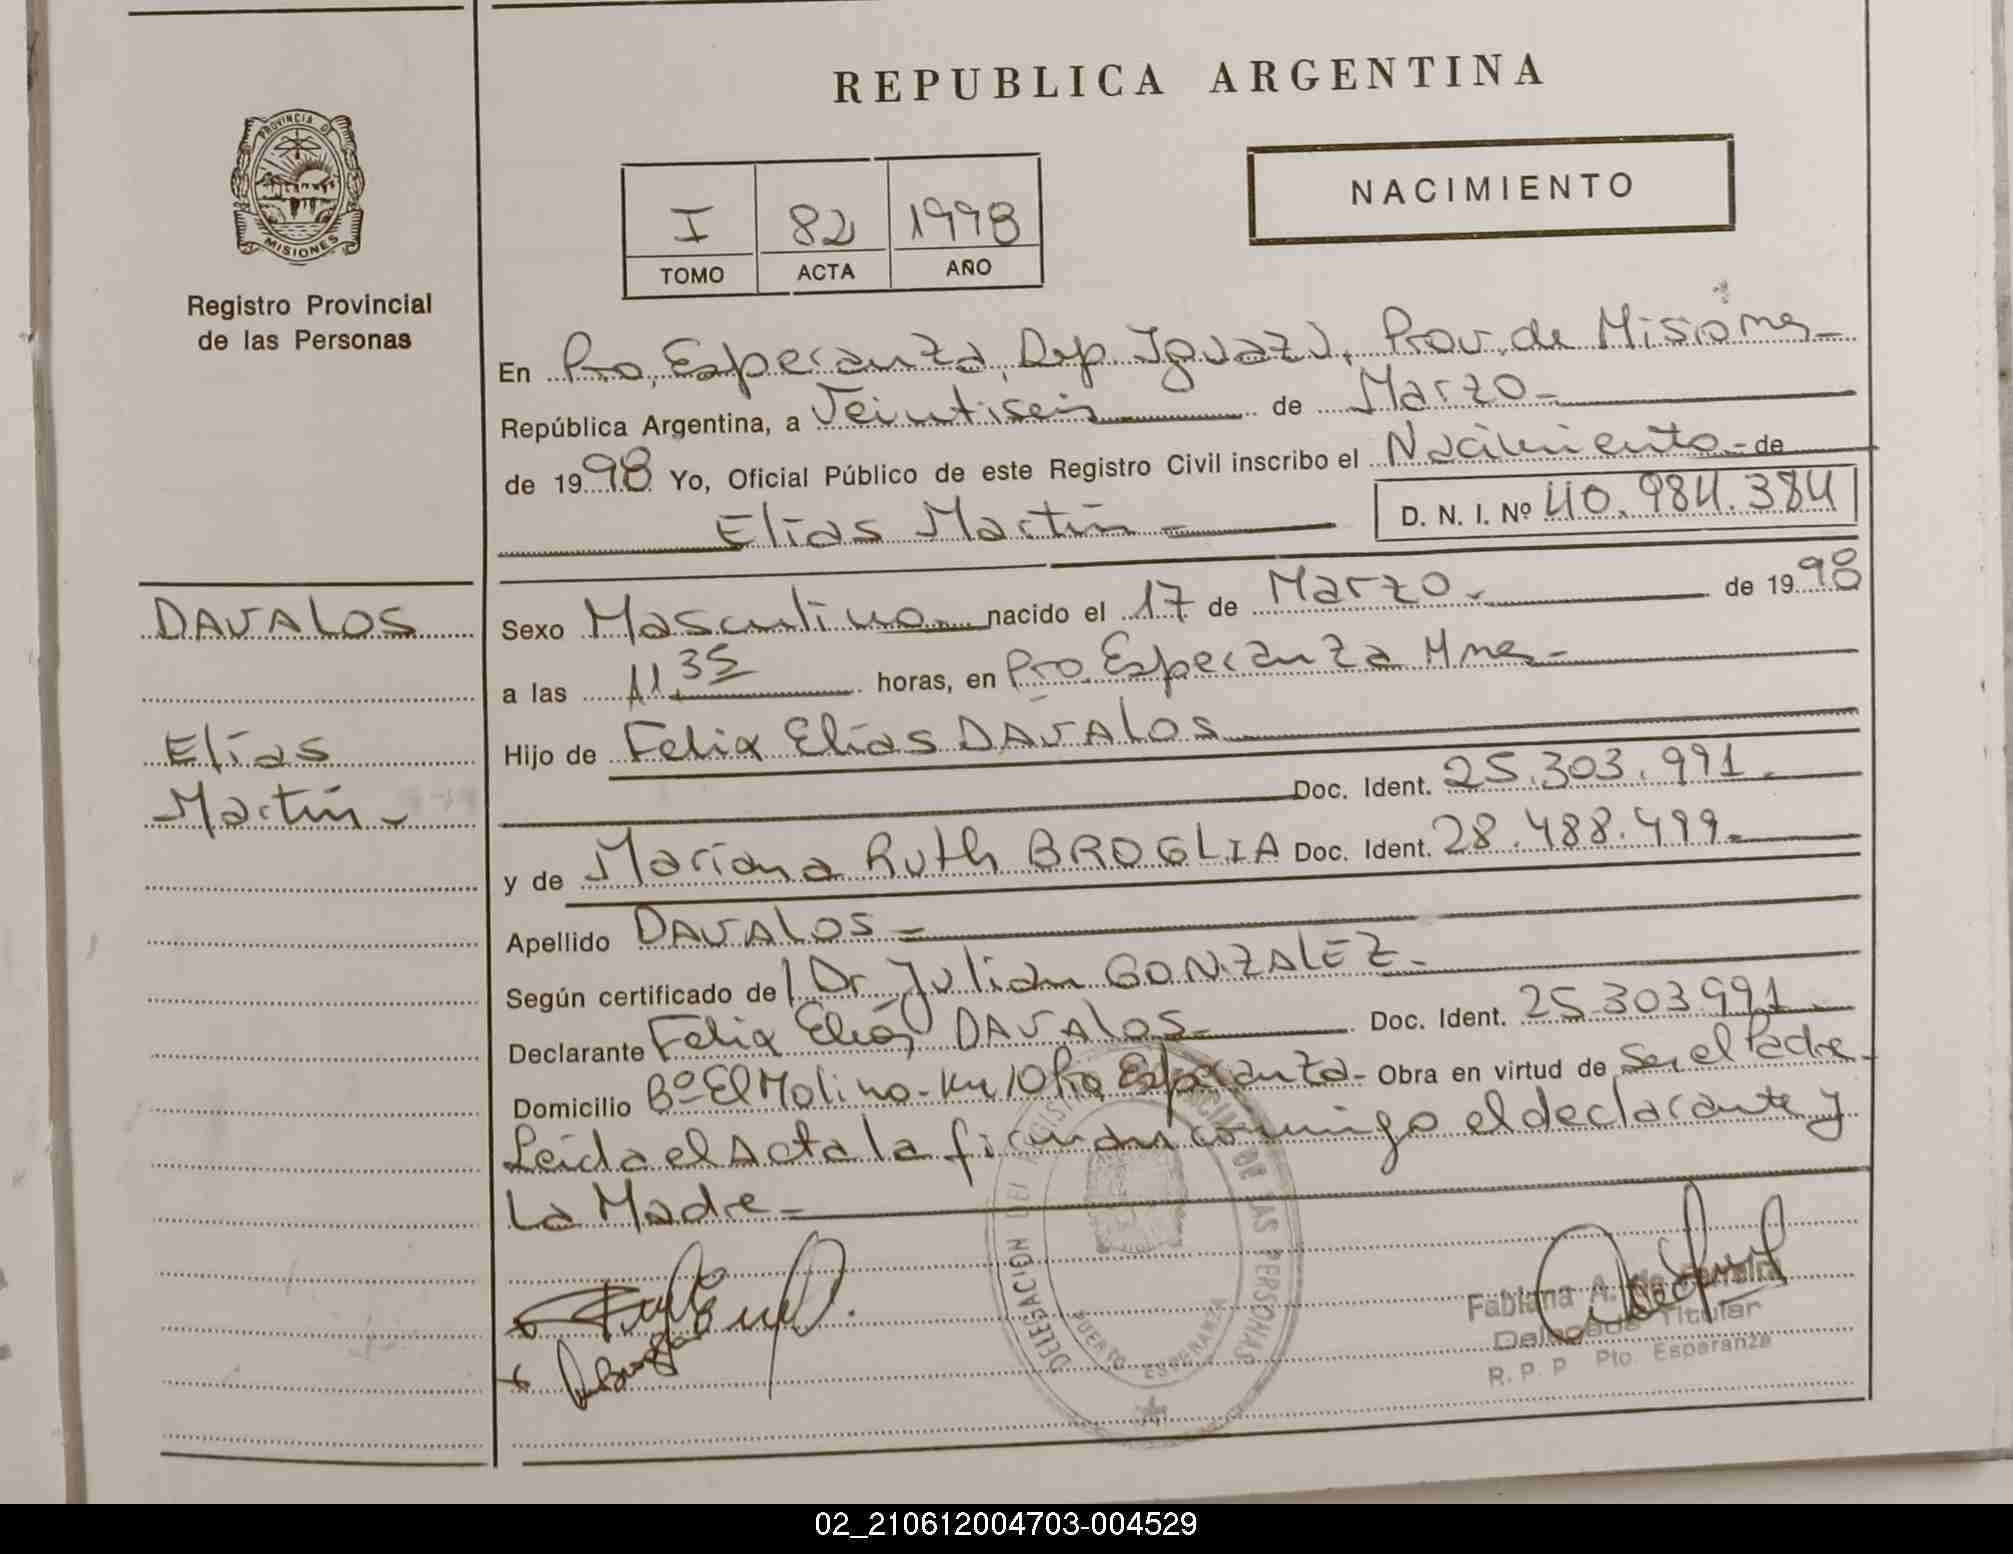 REPUBLICA ARGENTINA
PROVINCIA DE
MISIONES
Registro Provincial
de las Personas
I 82 1998
TOMO ACTA AÑO
NACIMIENTO
En Pto. Esperanza, Dep. Iguazú, Prov. de Misiones-
República Argentina, a Veintiseis de Marzo-
de 1998 Yo, Oficial Público de este Registro Civil inscribo el Nacimiento - de
Elías Martín - D. N. I. Nº 40.984.384
DAVALOS
Elías
Martín -
Sexo Masculino nacido el 17 de Marzo - de 1998
a las 11.35 horas, en Pto. Esperanza Mnes-
Hijo de Felix Elías DAVALOS
Doc. Ident. 25.303.991.
y de Mariana Ruth BROGLIA Doc. Ident. 28.488.499-
Apellido DAVALOS -
Según certificado del Dr. Julian GONZALEZ-
Declarante Felix Elías DAVALOS- Doc. Ident. 25.303991.
Domicilio Bº El Molino-Km 10 Pto Esperanza- Obra en virtud de Ser el Padre-
Leida el Acta la firman conmigo el declarante y
La Madre -
DELEGACION DEL REGISTRO PROVINCIAL DE LAS PERSONAS
PUERTO ESPERANZA
Fabiana A. de
Delegada Titular
R. P. P Pto. Esperanza
02_210612004703-004529